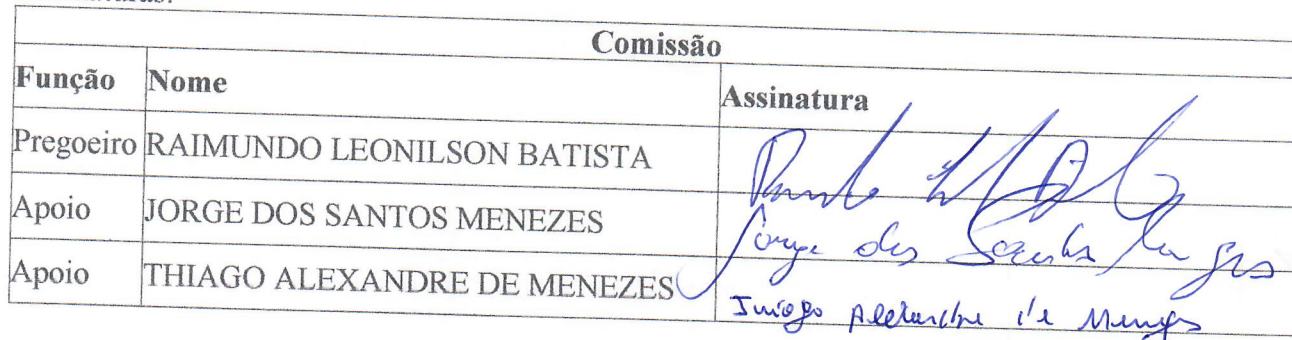 Comissão
Função Nome Assinatura
Pregoeiro RAIMUNDO LEONILSON BATISTA
Apoio JORGE DOS SANTOS MENEZES Jorge dos Santos
Apoio THIAGO ALEXANDRE DE MENEZES